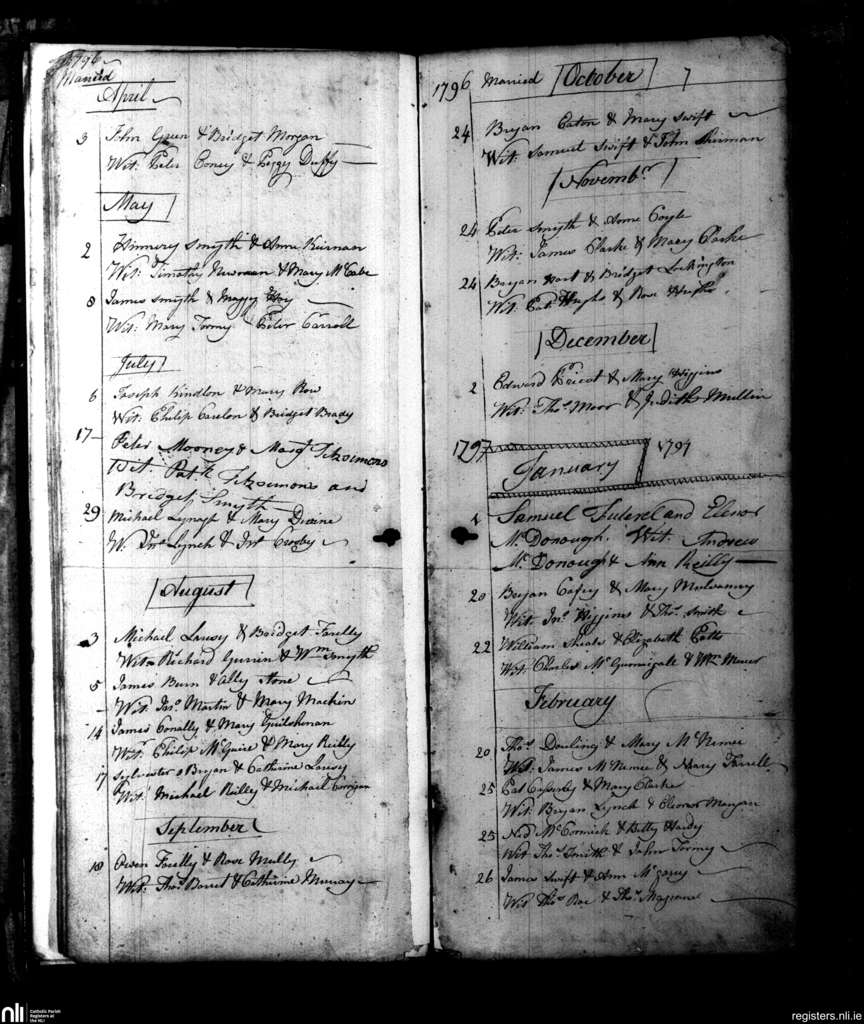 1796
Married
April
3 John Green & Bridget Morgan
Wit: Peter Coney & Peggy Duffy
May
2 Smyth & Anne Kiernan
Wit: Timothy Newman & Mary McCabe
8 James Smyth & Maggy
Wit: Mary Tormy Peter Carroll
July
6 Joseph Kindlon & Mary Row
Wit: Philip & Bridget Brady
17 Peter Mooney & Marg Fitzsimons
Wit. Patk Fitzsimons and
Bridget Smyth
29 Michael Lynagh & Mary
W. Lynch & Jno Crosby
August
3 Michael & Bridget Farelly
Wit Richard & Wm Smyth
5 James Burn & Ally
Wit. Jno Martin & Mary Mackin
14 James Conally & Mary
Wit. Philip McGuire & Mary Reilly
17 Sylvester o Bryan & Catherine
Wit. Michael Reilly & Michael Corrigan
September
18 Owen Farelly & Rose Mully
Wit: Thos Barret & Catherine Murray
1796 Married October
24 Bryan Eaton & Mary Swift
Wit. Samuel Swift & John Kiernan
Novembr
24 Peter Smyth & Anne Coyle
Wit: James Clarke & Mary Clarke
24 Bryan Hart & Bridget Lockington
Wit. Pat Hughs & Rose Hughs
December
2 Edward & Mary Higgins
Wit: Thos Moor & Judith Mullin
1797 January 1797
1 Samuel and Elenor
McDonough. Wit. Andrew
McDonough & Ann Reilly
20 Bryan & Mary Mulvanny
Wit. Jno Higgins & Thos Smith
22 William & Elizabeth
Wit. Charles &
February
20 Thos Dowling & Mary McNemee
Wit. James McNemee & Mary Farrell
25 Pat Casserly & Mary Clarke
Wit. Bryan Lynch & Eleonor Mangan
25 Ned McCormick & Betty Hardy
Wit Thos Smith & John Tormy
26 James Swift & Ann McGarry
Wit Thos Roe & Thos Magrane
nli Catholic Parish
Registers at
the NLI
registers.nli.ie